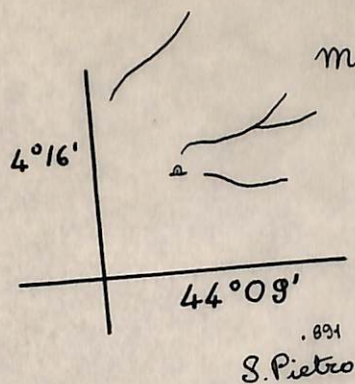 m
4°16'
44°09'
.891
S. Pietro